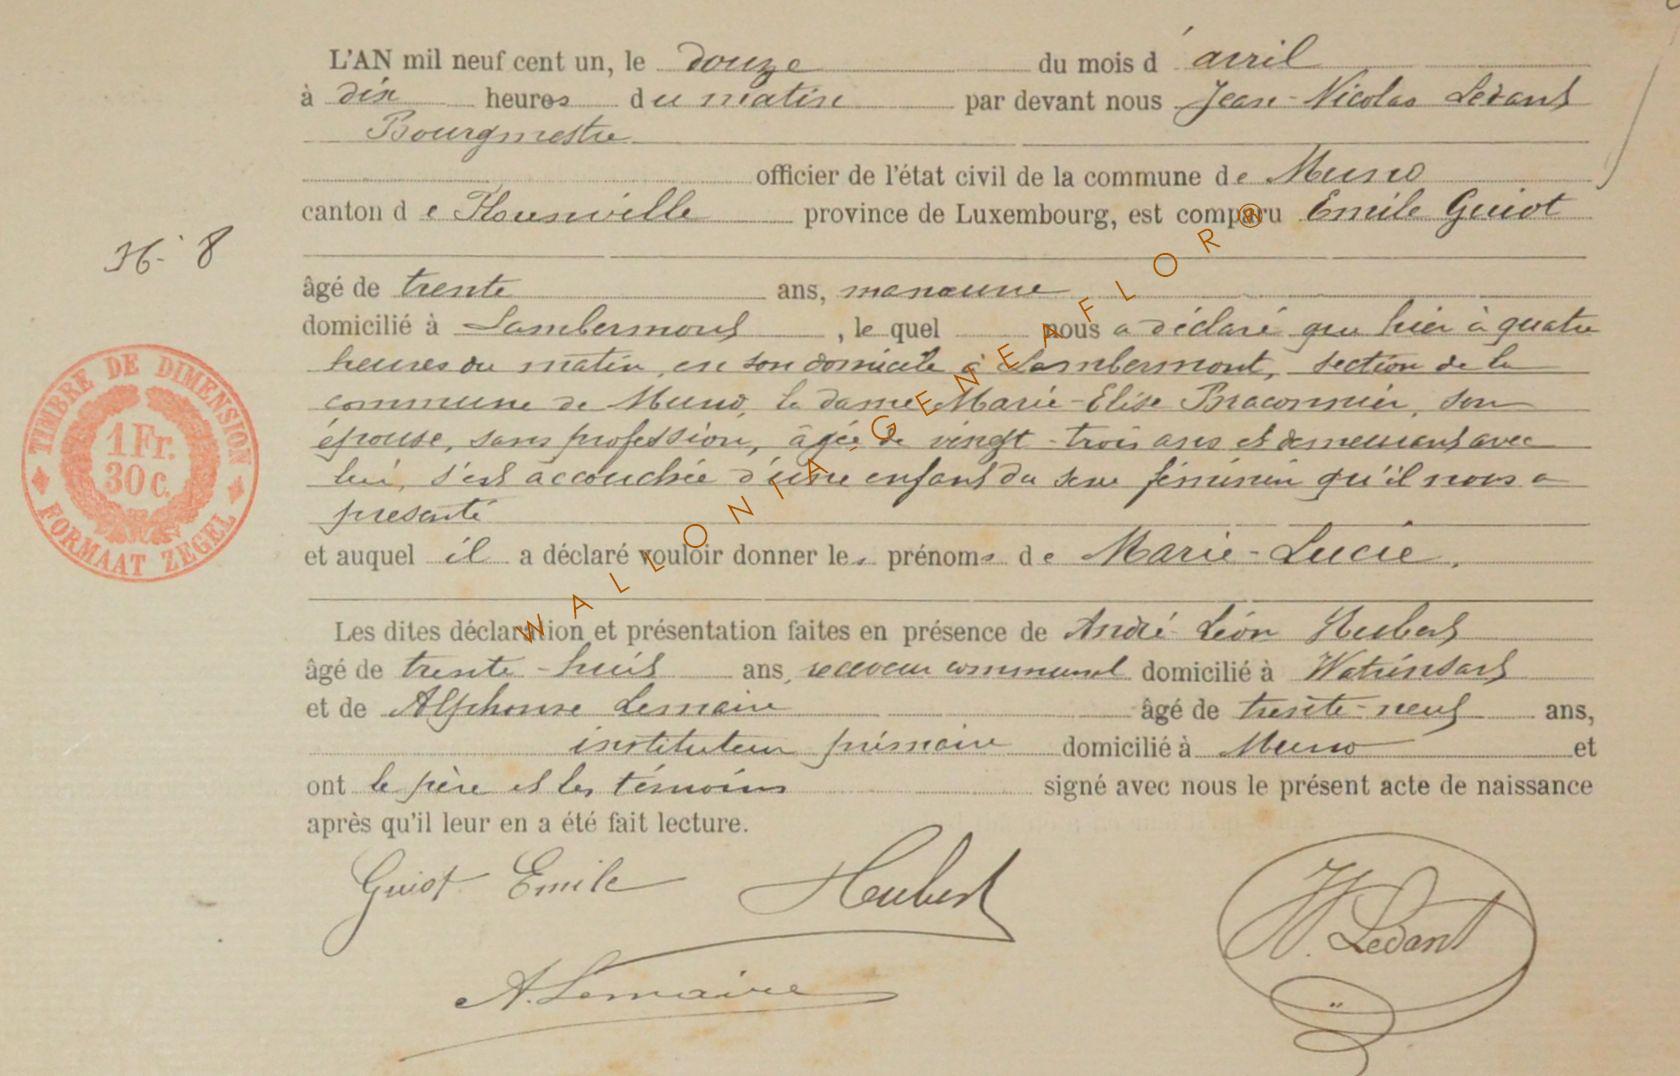 L'AN mil neuf cent un, le douze du mois d'avril
à dix heures du matin par devant nous Jean-Nicolas Ledant
Bourgmestre
officier de l'état civil de la commune de Muno
canton de Florenville province de Luxembourg, est comparu Emile Guiot
N° 8
âgé de trente ans, manœuvre
domicilié à Lambermont, lequel nous a déclaré que hier à quatre
heures du matin, en son domicile à Lambermont, section de la
commune de Muno, la dame Marie-Elise Braconnier, son
épouse, sans profession, âgée de vingt-trois ans et demeurant avec
lui, s'est accouchée d'une enfant du sexe féminin qu'il nous a
presenté
et auquel il a déclaré vouloir donner les prénoms de Marie-Lucie.
Les dites déclaration et présentation faites en présence de André Léon Hubert
âgé de trente-huit ans, receveur communal domicilié à Watrinsart
et de Alphonse Lemaire âgé de trente-neuf ans,
instituteur primaire domicilié à Muno et
ont le père et les témoins signé avec nous le présent acte de naissance
après qu'il leur en a été fait lecture.
Guiot Emile Hubert
Ledant
A. Lemaire
TIMBRE DE DIMENSION
1 Fr.
30 C.
FORMAAT ZEGEL
WALLONIA-GENEAFLOR®